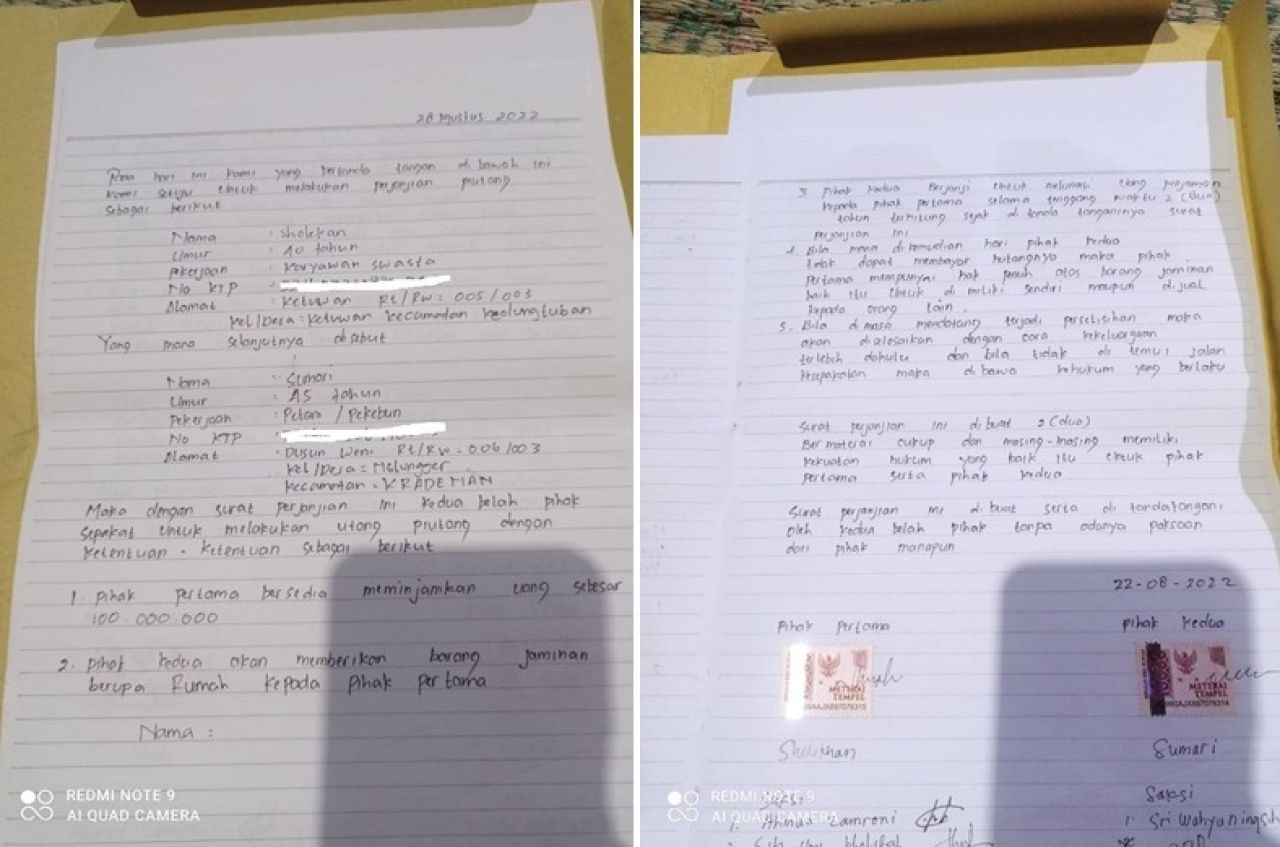 28 Agustus 2022
Pada hari ini kami yang bertanda tangan di bawah ini
kami setuju untuk melakukan perjanjian piutang
sebagai berikut
Nama : Sholekan
Umur : 40 tahun
Pekerjaan : Karyawan swasta
No KTP :
Alamat : Ketuwan Rt/Rw : 005/003
Kel/Desa : Ketuwan Kecamatan Kedungtuban
Yang mana selanjutnya disebut
Nama : Sumari
Umur : 45 tahun
Pekerjaan : Petani / Pekebun
No KTP :
Alamat : Dusun Weni Rt/Rw : 006/003
Kel/Desa : Melungger
Kecamatan : KRADENAN
Maka dengan surat perjanjian ini kedua belah pihak
sepakat untuk melakukan utang piutang dengan
ketentuan - ketentuan sebagai berikut
1. pihak pertama bersedia meminjamkan uang sebesar
100.000.000
2. pihak kedua akan memberikan barang jaminan
berupa Rumah kepada Pihak pertama
Nama :
REDMI NOTE 9
AI QUAD CAMERA
3. Pihak kedua berjanji untuk melunasi uang pinjaman
kepada pihak pertama selama tenggang waktu 2 (dua)
tahun terhitung sejak di tanda tanganinya surat
perjanjian ini
4. Bila mana di kemudian hari pihak kedua
tidak dapat membayar hutangnya maka pihak
pertama mempunyai hak penuh atas barang jaminan
baik itu untuk di miliki sendiri maupun dijual
kepada orang lain.
5. Bila dimasa mendatang terjadi perselisihan maka
akan diselesaikan dengan cara kekeluargaan
terlebih dahulu dan bila tidak di temui jalan
kesepakatan maka dibawa kehukum yang berlaku
Surat perjanjian ini dibuat 2 (dua)
Bermaterai cukup dan masing-masing memiliki
kekuatan hukum yang baik itu untuk pihak
pertama serta pihak kedua.
Surat perjanjian ini di buat serta di tandatangani
oleh kedua belah pihak tanpa adanya paksaan
dari pihak manapun
22-08-2022
Pihak Pertama
pihak kedua
METERAI
TEMPEL
METERAI
TEMPEL
Sholekhan
Sumari
Saksi
Saksi
1. Ahmad Zamroni
1. Sri Wahyuningsih
REDMI NOTE 9
AI QUAD CAMERA